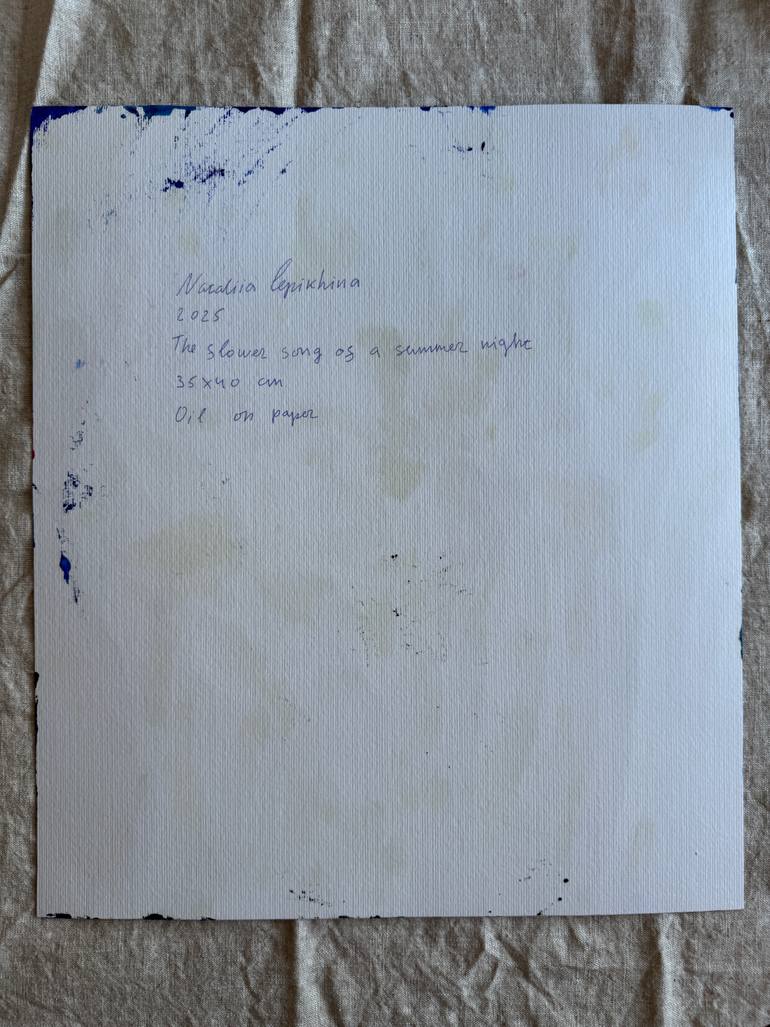 Nataliia Lepikhina
2025
The slower song of a summer night
35x40 cm
Oil on paper